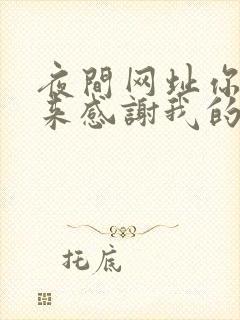 夜間网址你
来感謝我的
托底